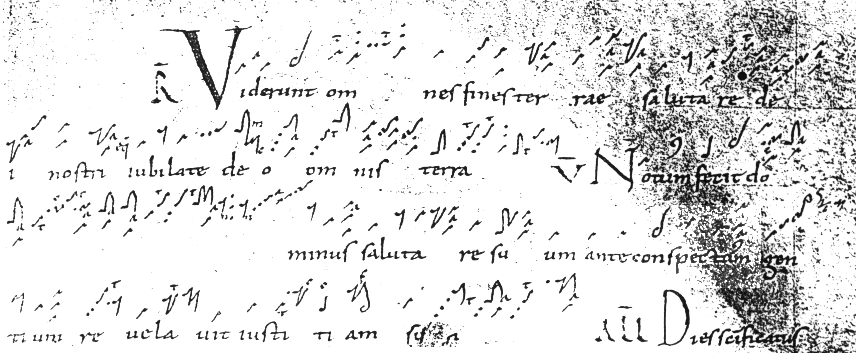 R Viderunt om nes fines ter rae saluta re de
i nostri iubilate de o om nis terra V Notum fecit do
minus saluta re su um ante conspectum gen
tium re vela vit iusti ti am su
All Dies scificatus